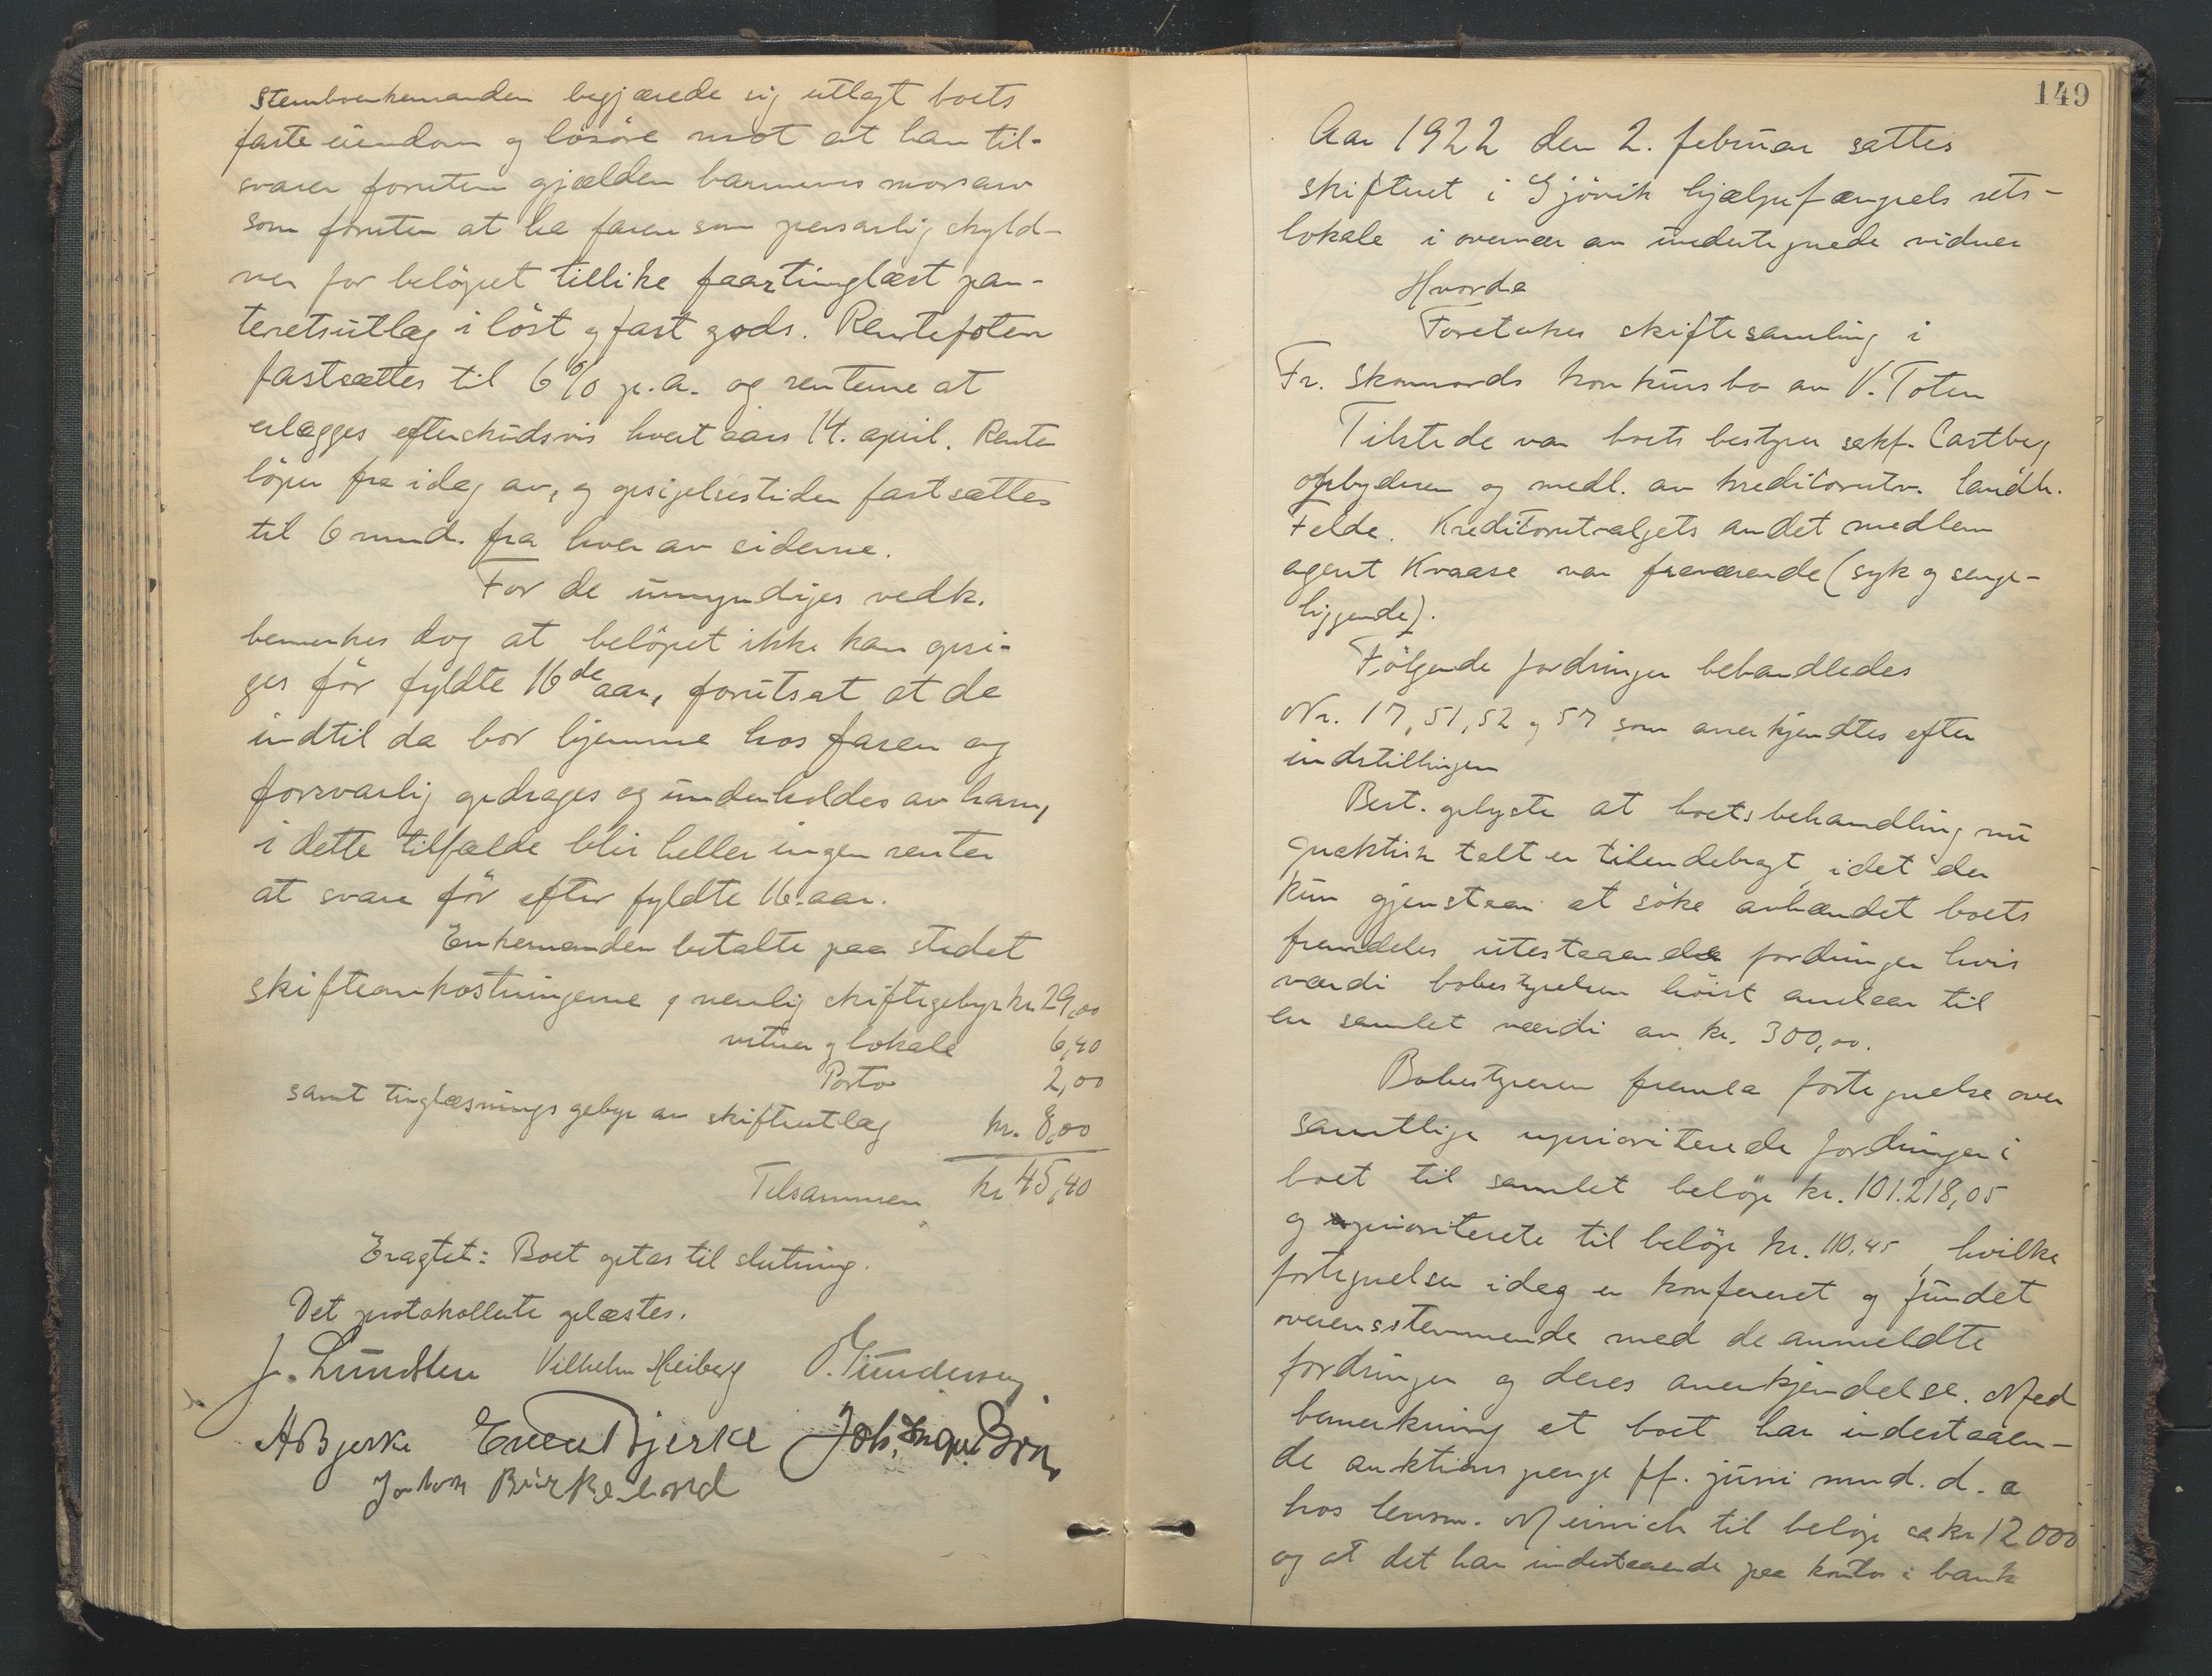 Stervboenkemanden begjærede sig utlagt boets
faste eiendom og lösöre mot at han til-
svarer foruten gjælden barnenes morsarv
som foruten at ha faren som personlig skyld-
ner for belöpet tillike faar tinglæst pan-
teretsutlæg i löst og fast gods. Rentefoten
fastsættes til 6% p.a. og renterne at
erlægges efterskudsvis hvert aars 14. april. Renter
löper fra idag av, og opsigelsestiden fastsættes
til 6 mnd. fra hver av siderne.
For de umyndiges vedk.
bemerkes dog at belöpet ikke kan opsi-
ges för fyldte 16de aar, forutsat at de
indtil da bor hjemme hos faren og
forsvarlig opdrages og underholdes av ham,
i dette tilfælde blir heller ingen renter
at svare för efter fyldte 16. aar.
Enkemanden betalte paa stedet
skifteomkostningerne, nemlig skiftegebyr kr. 29,00
vitner og lokale 6,40
Porto 2,00
samt tinglæsningsgebyr av skifteutlæg kr. 8,00
Tilsammen kr 45,40
Eragtet: Boet optas til slutning.
Det protokollerte oplæstes.
J. Lundsten Vilhelm Heiberg O. Gundersen
A Bjerke Even Bjerke Joh. Ingv.
Birkelund
149
Aar 1922 den 2. februar sattes
skifteret i Gjövik hjælpefængsels rets-
lokale i overvær av undertegnede vidner
Hvorda
Foretokes skiftesamling i
Fr. Skonnords konkursbo av V. Toten
Tilstede var boets bestyrer sakf. Castberg
opbyderen og medl. av kreditorutv. landh.
Felde. Kreditorutvalgets andet medlem
agent Kvaase var fraværende (syk og senge-
liggende).
Fölgende fordringer behandledes
Nr. 17, 51, 52 og 57 som anerkjendtes efter
indstillingen
Best. oplyste at boets behandling nu
praktisk talt er tilendebragt, idet der
kun gjenstaar at söke avhændet boets
fremdeles utestaaende fordringer hvis
værdi bobestyrelsen höist anslaar til
en samlet værdi av kr. 300,00.
Bobestyreren fremla fortegnelse over
samtlige uprioriterede fordringer i
boet til samlet belöp kr. 101.218,05
og prioriterete til belöp kr. 110,45, hvilke
fortegnelser idag er konfereret og fundet
overensstemmende med de anmeldte
fordringer og deres anerkjendelse. Med
bemerkning at boet har indestaaen-
de auktionspenge pf. juni mnd. d. a
hos lensm. Meinich til belöp ca kr 12000
og at det har indestaaende paa konto i bank